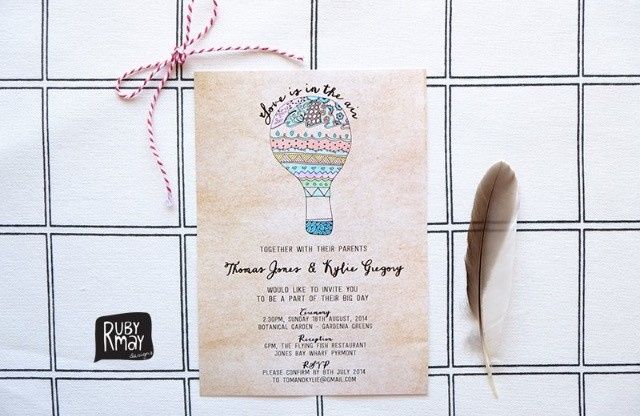 Love is in the air
TOGETHER WITH THEIR PARENTS
Thomas Jones & Kylie Gregory
WOULD LIKE TO INVITE YOU
TO BE A PART OF THEIR BIG DAY
Ceremony
2.30PM, SUNDAY 18TH AUGUST, 2014
BOTANICAL GARDEN - GARDENIA GREENS
Reception
6PM, THE FLYING FISH RESTAURANT
JONES BAY WHARF PYRMONT
RSVP
PLEASE CONFIRM BY 8TH JULY 2014
TO TOMANDKYLIE@GMAIL.COM
RUBY
MAY
designs